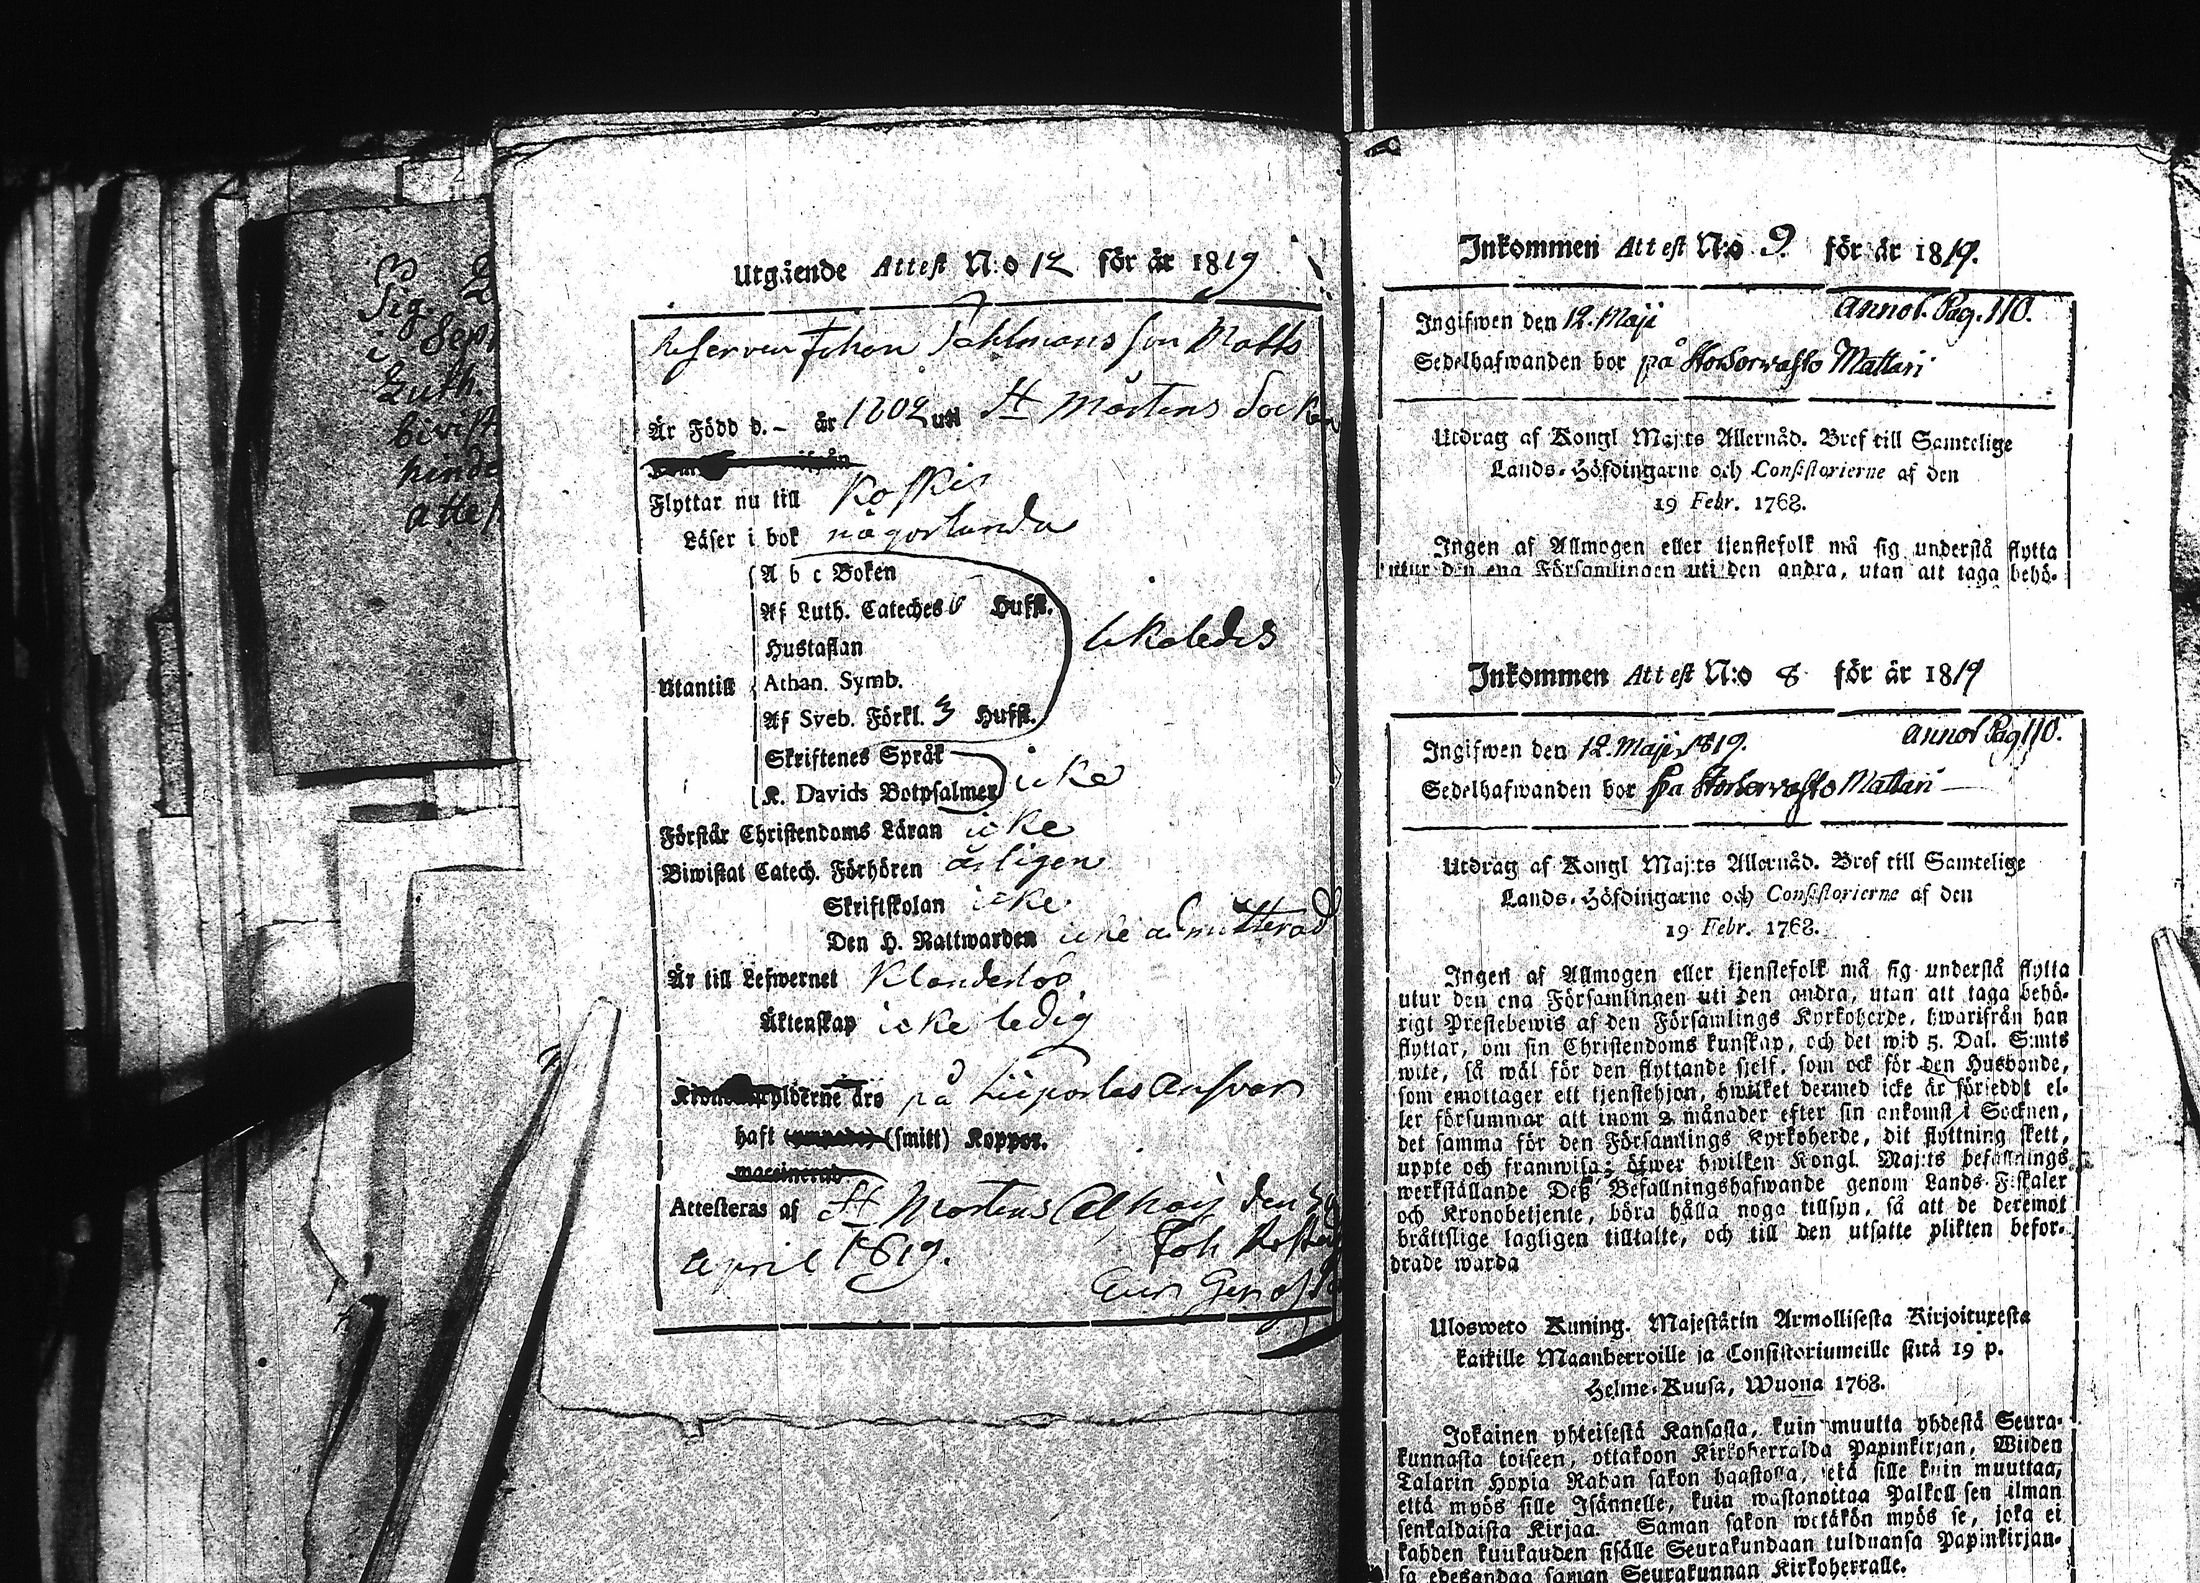 Sig.
i Sept
Luth.
bivist
hinde
attes
Utgående Attest N:o 12 för år 1819
Johan Fahlmans son Matts
Är Född d. - år 1802 uti St Mårtens Socken
Flyttar nu till Koskis
Läser i bok någorlunda
A b c Boken
Af Luth. Cateches 6 Hufst.
Hustaflan
likaledes
Utantill Athan. Symb.
Af Sveb. Förkl. 3 Hufst.
Skriftenes Språk
icke
K. Davids Botpsalmer
Förstår Christendoms Läran icke
Biwistat Catech. Förhören årligen
Skriftskolan icke
Den H. Nattwarden icke admitterad
Är till Lefwernet Klanderlös
Äktenskap icke ledig
ylderne äro på ansvar
haft (smitt) Koppor.
Attesteras af St Mårtens den
april 1819. Joh
Inkommen Attest N:o 9. för år 1819.
Ingifwen den 12. Maji annot. Pag. 110.
Sedelhafwanden bor på Mattari
Utdrag af Kongl Maj:ts Allernåd. Bref till Samtelige
Lands-Höfdingarne och Consistorierne af den
19 Febr. 1768.
Ingen af Allmogen eller tjenstefolk må sig understå flytta
utur den ena Församlingen uti den andra, utan att taga behö-
Inkommen Attest N:o 8 för år 1819
Ingifwen den 12. Maji 1819. annot Pag 110.
Sedelhafwanden bor på Mattari
Utdrag af Kongl Maj:ts Allernåd. Bref till Samtelige
Lands-Höfdingarne och Consistorierne af den
19 Febr. 1768.
Ingen af Allmogen eller tjenstefolk må sig understå flytta
utur den ena Församlingen uti den andra, utan att taga behö-
rigt Prestebewis af den Församlings Kyrkoherde, hwarifrån han
flyttar, om sin Christendoms kunskap, och det wid 5. Dal. S:mts
wite, så wäl för den flyttande sjelf, som ock för den Husbonde,
som emottager ett tjenstehjon, hwilket dermed icke är försedt el-
ler försummar att inom 2 månader efter sin ankomst i Socknen,
det samma för den Församlings Kyrkoherde, dit flyttning skett,
uppte och framwisa; öfwer hwilken Kongl. Maj:ts befallnings
werkställande Deß Befallningshafwande genom Lands-Fiskaler
och Kronobetjente, böra hålla noga tillsyn, så att de deremot
bråttslige lagligen tilltalte, och till den utsatte plikten befor-
drade warda
Ulosweto Kuning. Majestätin Armollisesta Kirjoituxesta
kaikille Maanherroille ja Consistoriumeille siitä 19 p.
Helme-Kuusa, Wuona 1768.
Jokainen yhteisestä Kansasta, kuin muutta yhdestä Seura-
kunnasta toiseen, ottakoon Kirkoherralda Papinkirjan, Wiiden
Talarin Hopia Rahan sakon haastolla, sekä sille kuin muuttaa,
että myös sille Isännelle, kuin wastanottaa Palkollisen ilman
senkaldaista Kirjaa. Saman sakon wetäkön myös se, joka ei
kahden kuukauden sisälle Seurakundaan tulduansa Papinkirjan-
sa edesandaa saman Seurakunnan Kirkoherralle.